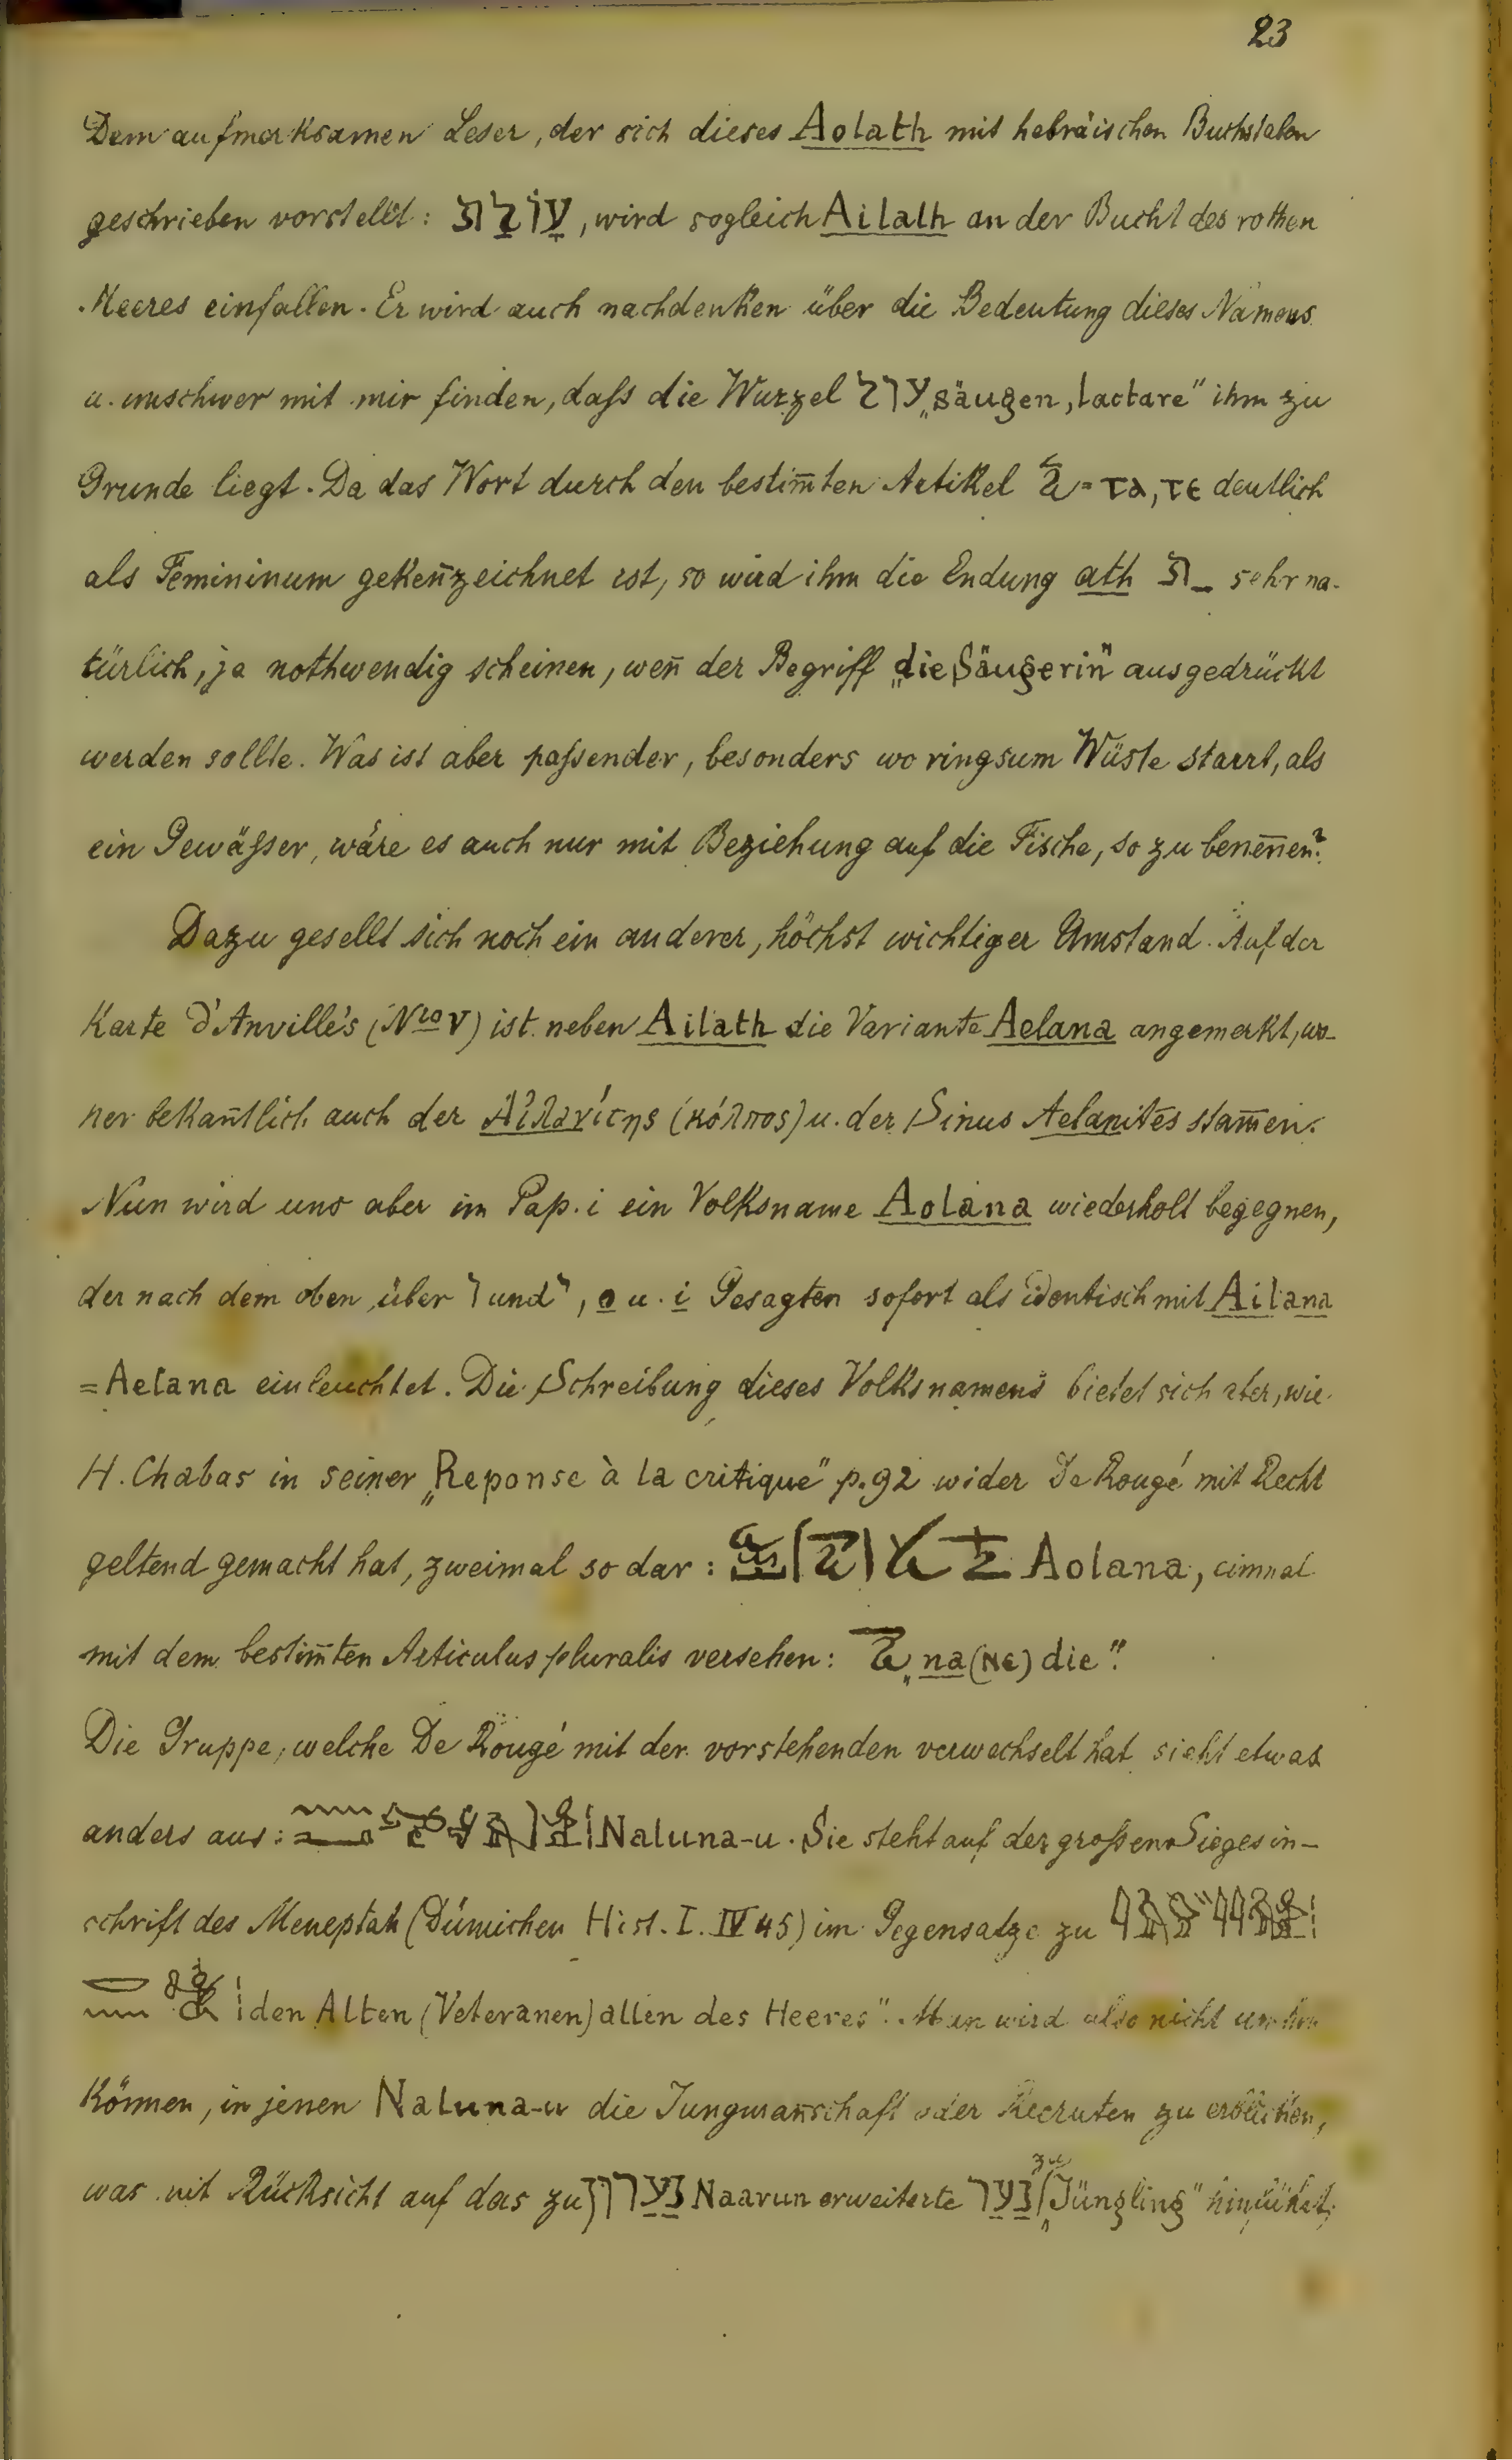 23
Dem aufmerksamen Leser, der sich dieses Aolath mit hebräischen Buchstaben
geschrieben vorstellt: עולת, wird sogleich Ailath an der Bucht des rothen
Meeres einfallen. Er wird auch nachdenken über die Bedeutung dieses Namens
u. unschwer mit mir finden, daſs die Wurzel עול „säugen, lactare" ihm zu
Grunde liegt. Da das Wort durch den bestim̄ten Artikel = ⲧⲁ, ⲧⲉ deutlich
als Femininum geken̄zeichnet ist, so wird ihm die Endung ath ת_ sehr na-
türlich, ja nothwendig scheinen, wen̄ der Begriff „die Säugerin" ausgedrückt
werden sollte. Was ist aber paſsender, besonders wo ringsum Wüste starrt, als
ein Gewäſser, wäre es auch nur mit Beziehung auf die Fische, so zu benen̄en?
Dazu gesellt sich noch ein anderer, höchst wichtiger Umstand. Auf der
Karte d'Anville's (Nro V) ist neben Ailath die Variante Aelana angemerkt, wo-
her bekan̄tlich auch der Αἰλανίτης (κόλπος) u. der Sinus Aelanites stam̄en.
Nun wird uns aber im Pap. i ein Volksname Aolana wiederholt begegnen,
der nach dem oben über ו und י, o u. i Gesagten sofort als identisch mit Ailana
= Aelana einleuchtet. Die Schreibung dieses Volksnamens bietet sich aber, wie
H. Chabas in seiner „Reponse à la critique" p. 92 wider De Rougé mit Recht
geltend gemacht hat, zweimal so dar: Aolana, einmal
mit dem bestim̄ten Articulus pluralis versehen: „na (ⲛⲉ) die".
Die Gruppe, welche De Rougé mit der vorstehenden verwechselt hat sieht etwas
anders aus: Naluna-u. Sie steht auf der groſsen Siegesin-
schrift des Meneptah (Dümichen Hist. I. IV 45) im Gegensatze zu
den Alten (Veteranen) allen des Heeres". Man wird also nicht umhin
können, in jenen Naluna-u die Jungman̄schaft oder Recruten zu erblicken,
was mit Rücksicht auf das zu נערון Naarun erweiterte נער „Jüngling" hinführt;
zu